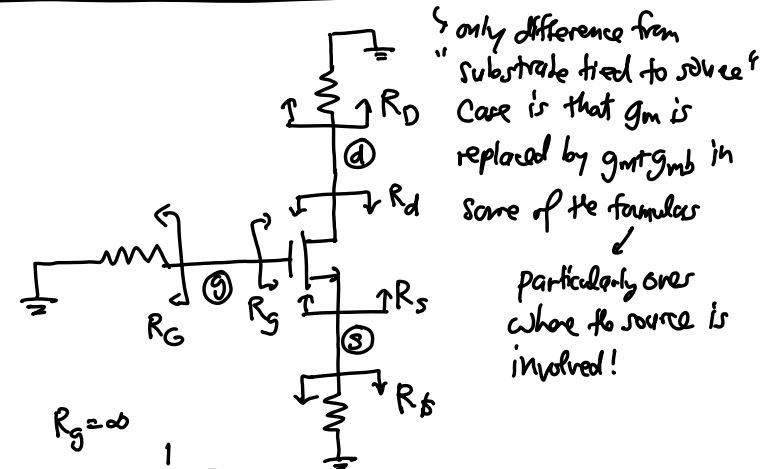 ↳ only difference from
"substrate tied to source"
case is that gm is
replaced by gm+gmb in
some of the formulas
particularly ones
where the source is
involved!
R_D
ⓓ
R_d
ⓖ
R_G
R_g
R_s
ⓢ
R_S
R_g = ∞
1